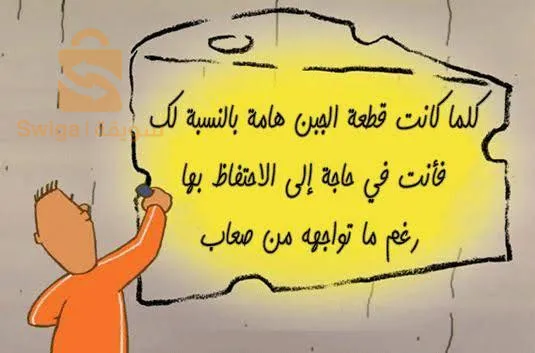 كلما كانت قطعة الجبن هامة بالنسبة لك
فأنت في حاجة إلى الاحتفاظ بها
رغم ما تواجهه من صعاب
Swiga | سويقة